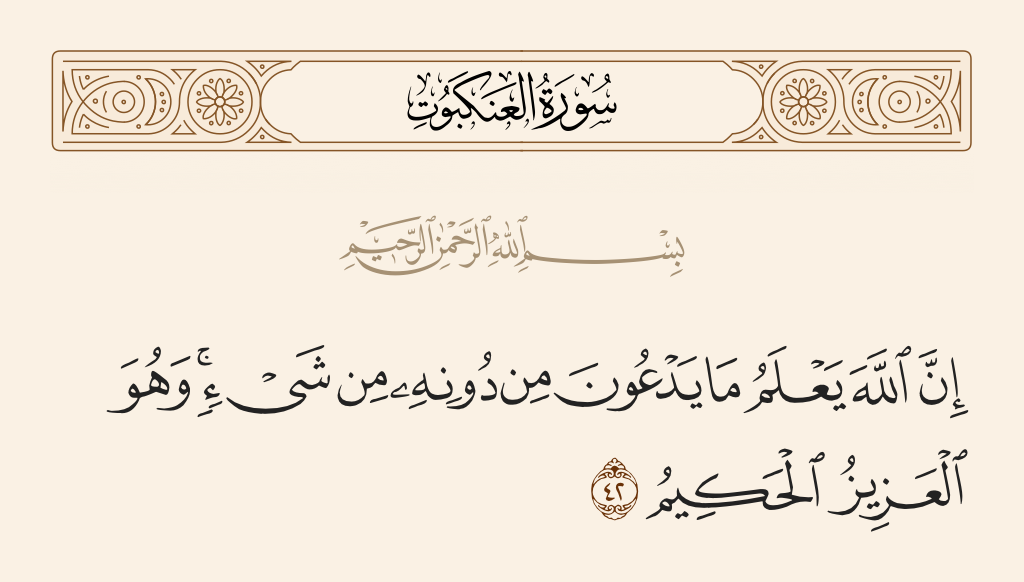 سُورَةُ العَنكَبُوتِ
بِسْمِ ٱللَّهِ ٱلرَّحْمَٰنِ ٱلرَّحِيمِ
إِنَّ ٱللَّهَ يَعْلَمُ مَا يَدْعُونَ مِن دُونِهِۦ مِن شَىْءٍۢ ۚ وَهُوَ
ٱلْعَزِيزُ ٱلْحَكِيمُ ٤٢